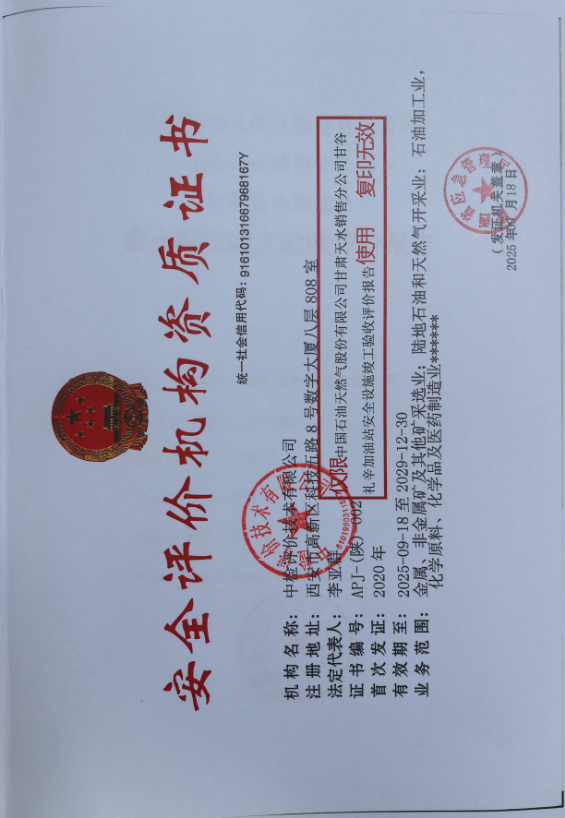 安全评价机构资质证书
统一社会信用代码：91610131667968167Y
机构名称：中检评价技术有限公司
注册地址：西安市高新区科技五路8号数字大厦八层808室
法定代表人：李亚群
证书编号：APJ-(陕)-002
首次发证：2020年
有效期至：2025-09-18至2029-12-30
业务范围：金属、非金属矿及其他矿采选业；陆地石油和天然气开采业；石油加工业，
化学原料、化学品及医药制造业******
仅限中国石油天然气股份有限公司甘肃天水销售分公司甘谷
礼辛加油站安全设施竣工验收评价报告使用 复印无效
（发证机关盖章）
2025年 月18日